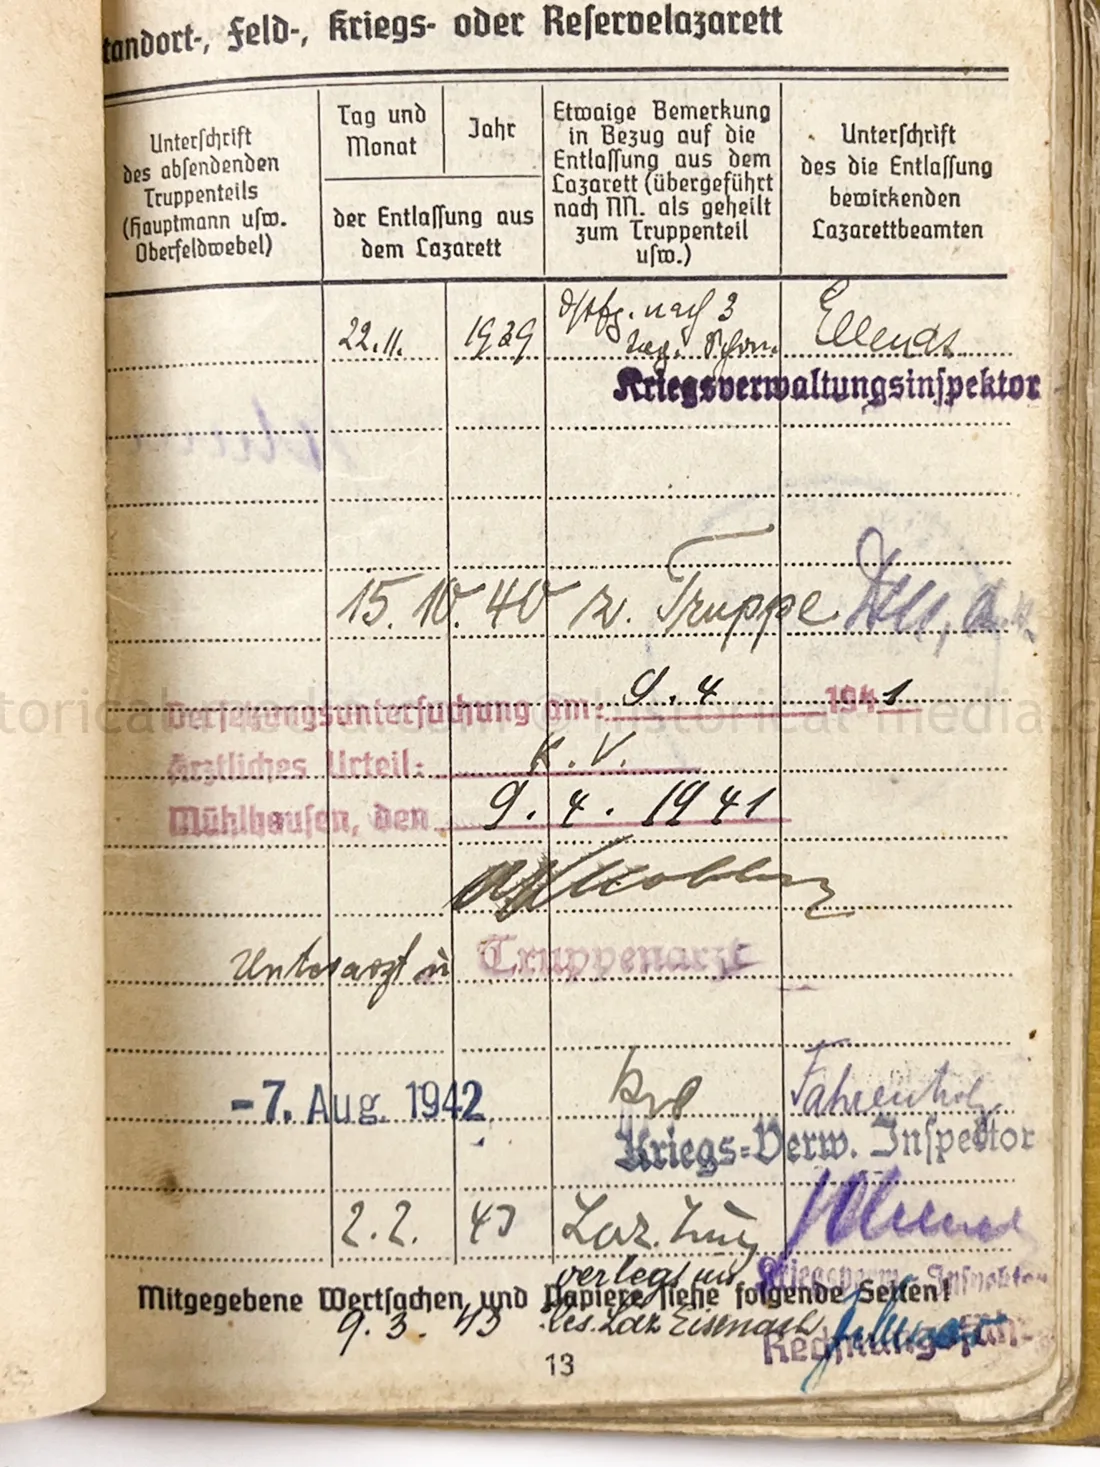 tandort-, Feld-, Kriegs- oder Reservelazarett
Unterschrift
des absendenden
Truppenteils
(Hauptmann usw.
Oberfeldwebel)
Tag und
Monat
Jahr
der Entlassung aus
dem Lazarett
Etwaige Bemerkung
in Bezug auf die
Entlassung aus dem
Lazarett (übergeführt
nach NN. als geheilt
zum Truppenteil
usw.)
Unterschrift
des die Entlassung
bewirkenden
Lazarettbeamten
22.11. 1939 nach 3
Kriegsverwaltungsinspektor
15.10.40 z. Truppe
torical-media.com @ historical-media.c
Versetzungsuntersuchung am: 9.4 1941
Ärztliches Urteil: K.V.
Mühlhausen, den 9.4.1941
Unterarzt u Truppenarzt
-7. Aug. 1942 Fahrenholz
Kriegs-Verw. Inspektor
2.2. 43 Laz. Zug
verlegt ins Kriegsverw.-Inspektor
Mitgegebene Wertsachen und Papiere siehe folgende Seiten!
9.3. 43 Res. Laz Eisenach
13